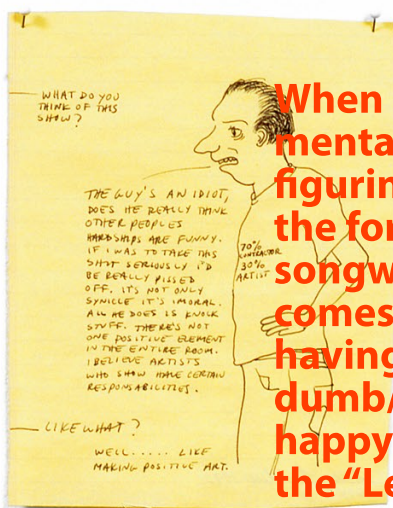 WHAT DO YOU
THINK OF THIS
SHOW?
THE GUY'S AN IDIOT,
DOES HE REALLY THINK
OTHER PEOPLES
HARDSHIPS ARE FUNNY.
IF I WAS TO TAKE THIS
SHIT SERIOUSLY I'D
BE REALLY PISSED
OFF. IT'S NOT ONLY
SYNICLE IT'S IMORAL.
ALL HE DOES IS KNOCK
STUFF. THERE'S NOT
ONE POSITIVE ELEMENT
IN THE ENTIRE ROOM.
I BELIEVE ARTISTS
WHO SHOW HAVE CERTAIN
RESPONSABILITIES.
LIKE WHAT?
WELL..... LIKE
MAKING POSITIVE ART.
70%
CONTRACTOR
30%
ARTIST
When
menta
figurin
the for
songw
comes
having
dumb/
happy
the “Le